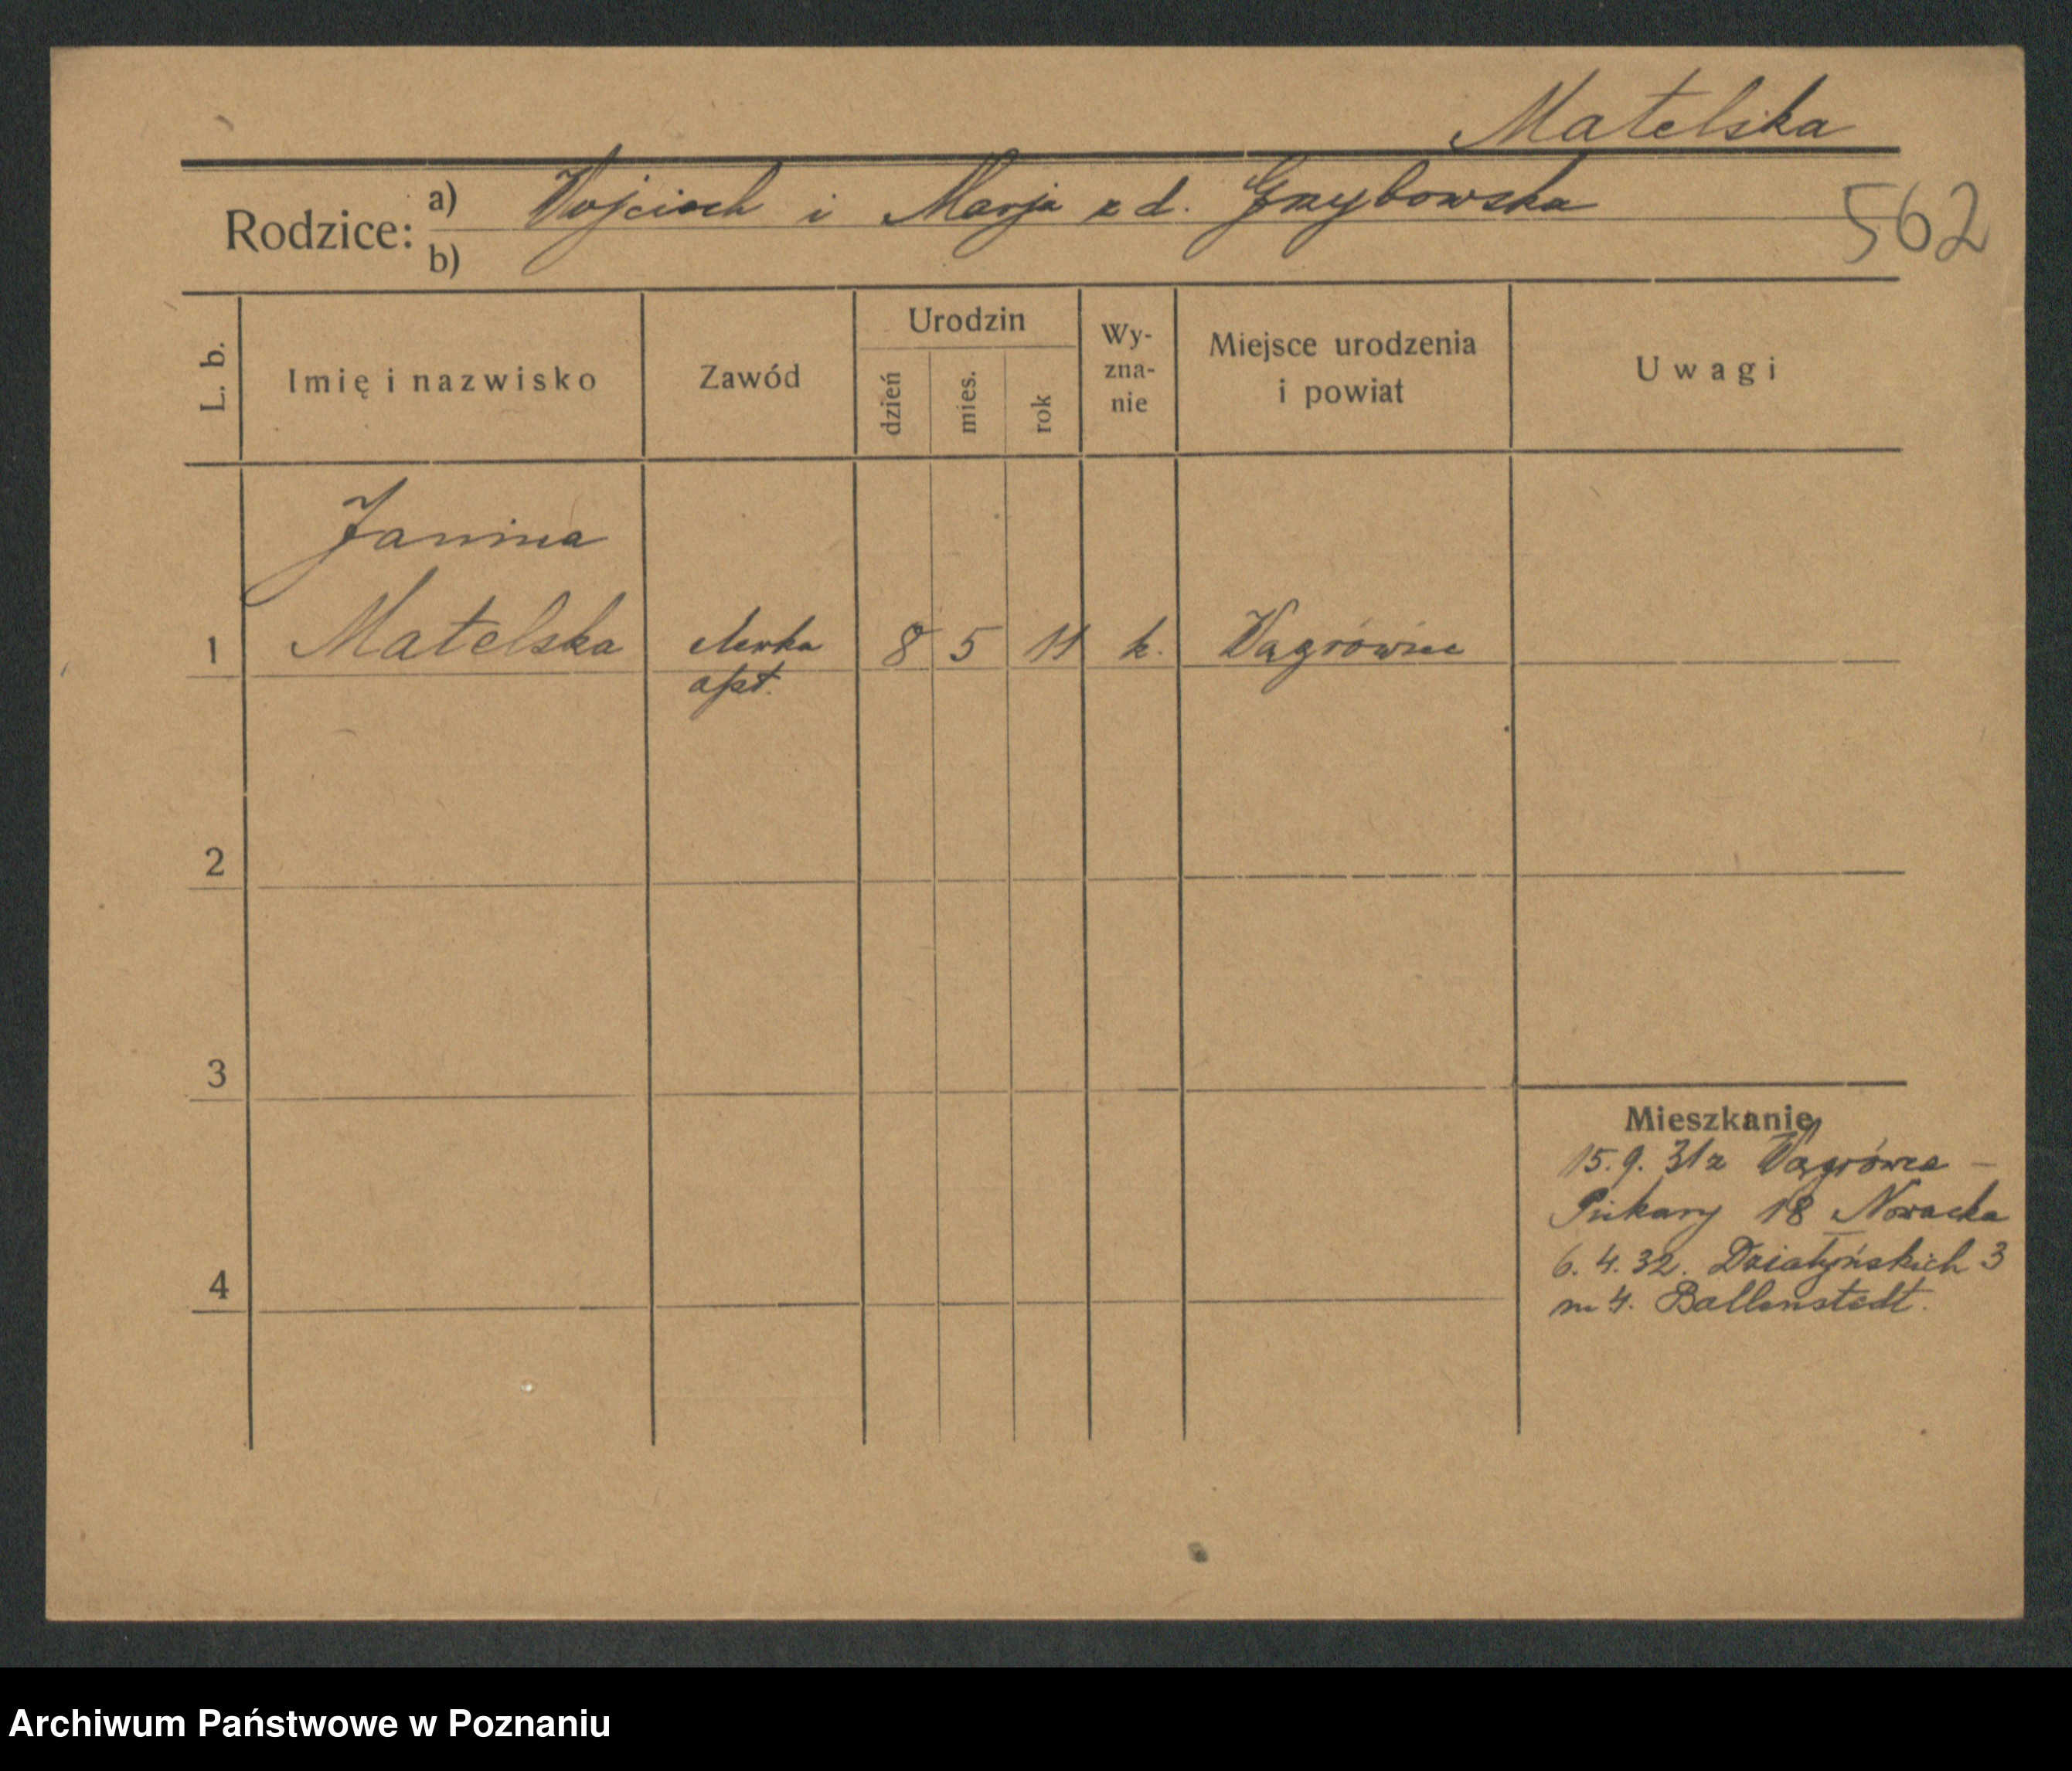 Matelska
Rodzice: a) Wojciech i Marja z d. Grzybowska
b)
562
L. b.
Imię i nazwisko
Zawód
Urodzin
dzień
mies.
rok
Wy-
zna-
nie
Miejsce urodzenia
i powiat
Uwagi
Janina
1 Matelska 8 5 11 k. Wągrówiec
apt.
2
3
4
Mieszkanie
15.9.31 z Wągrówca –
Piekary 18 Nowacka
6.4.32. Działyńskich 3
m 4. Ballenstedt.
Archiwum Państwowe w Poznaniu